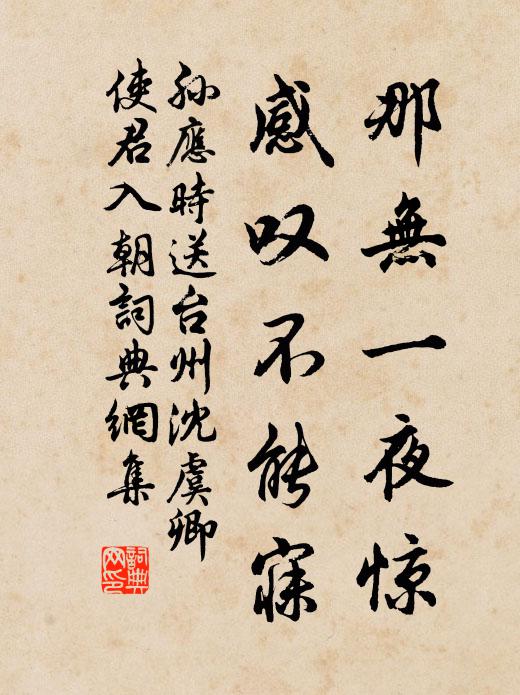 那無一夜惊
感叹不能寐
孙應時送台州沈虞卿
使君入朝詞典網集
詞典网印